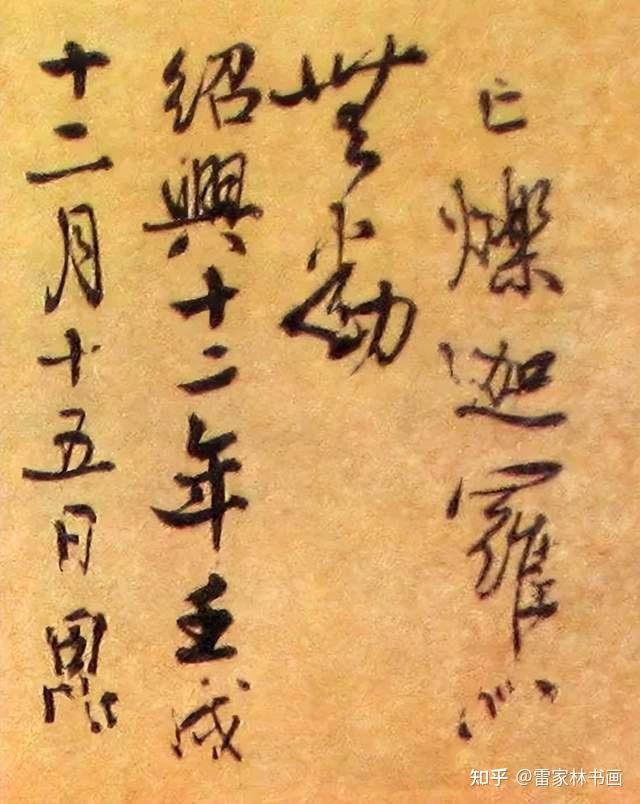 亡爍迦羅心
無動
紹興十二年壬戌
十二月十五日
知乎 @雷家林书画